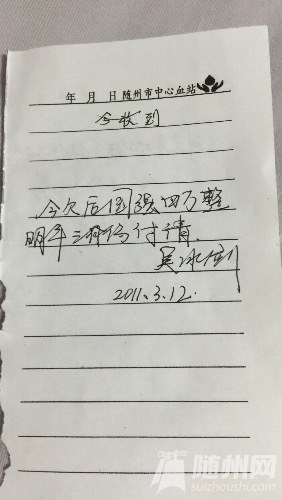 年 月 日 随州市中心血站
今收到
今欠后国强四万整
明年三月付清.
吴
2011.3.12.
随州网
suizhoushi.com